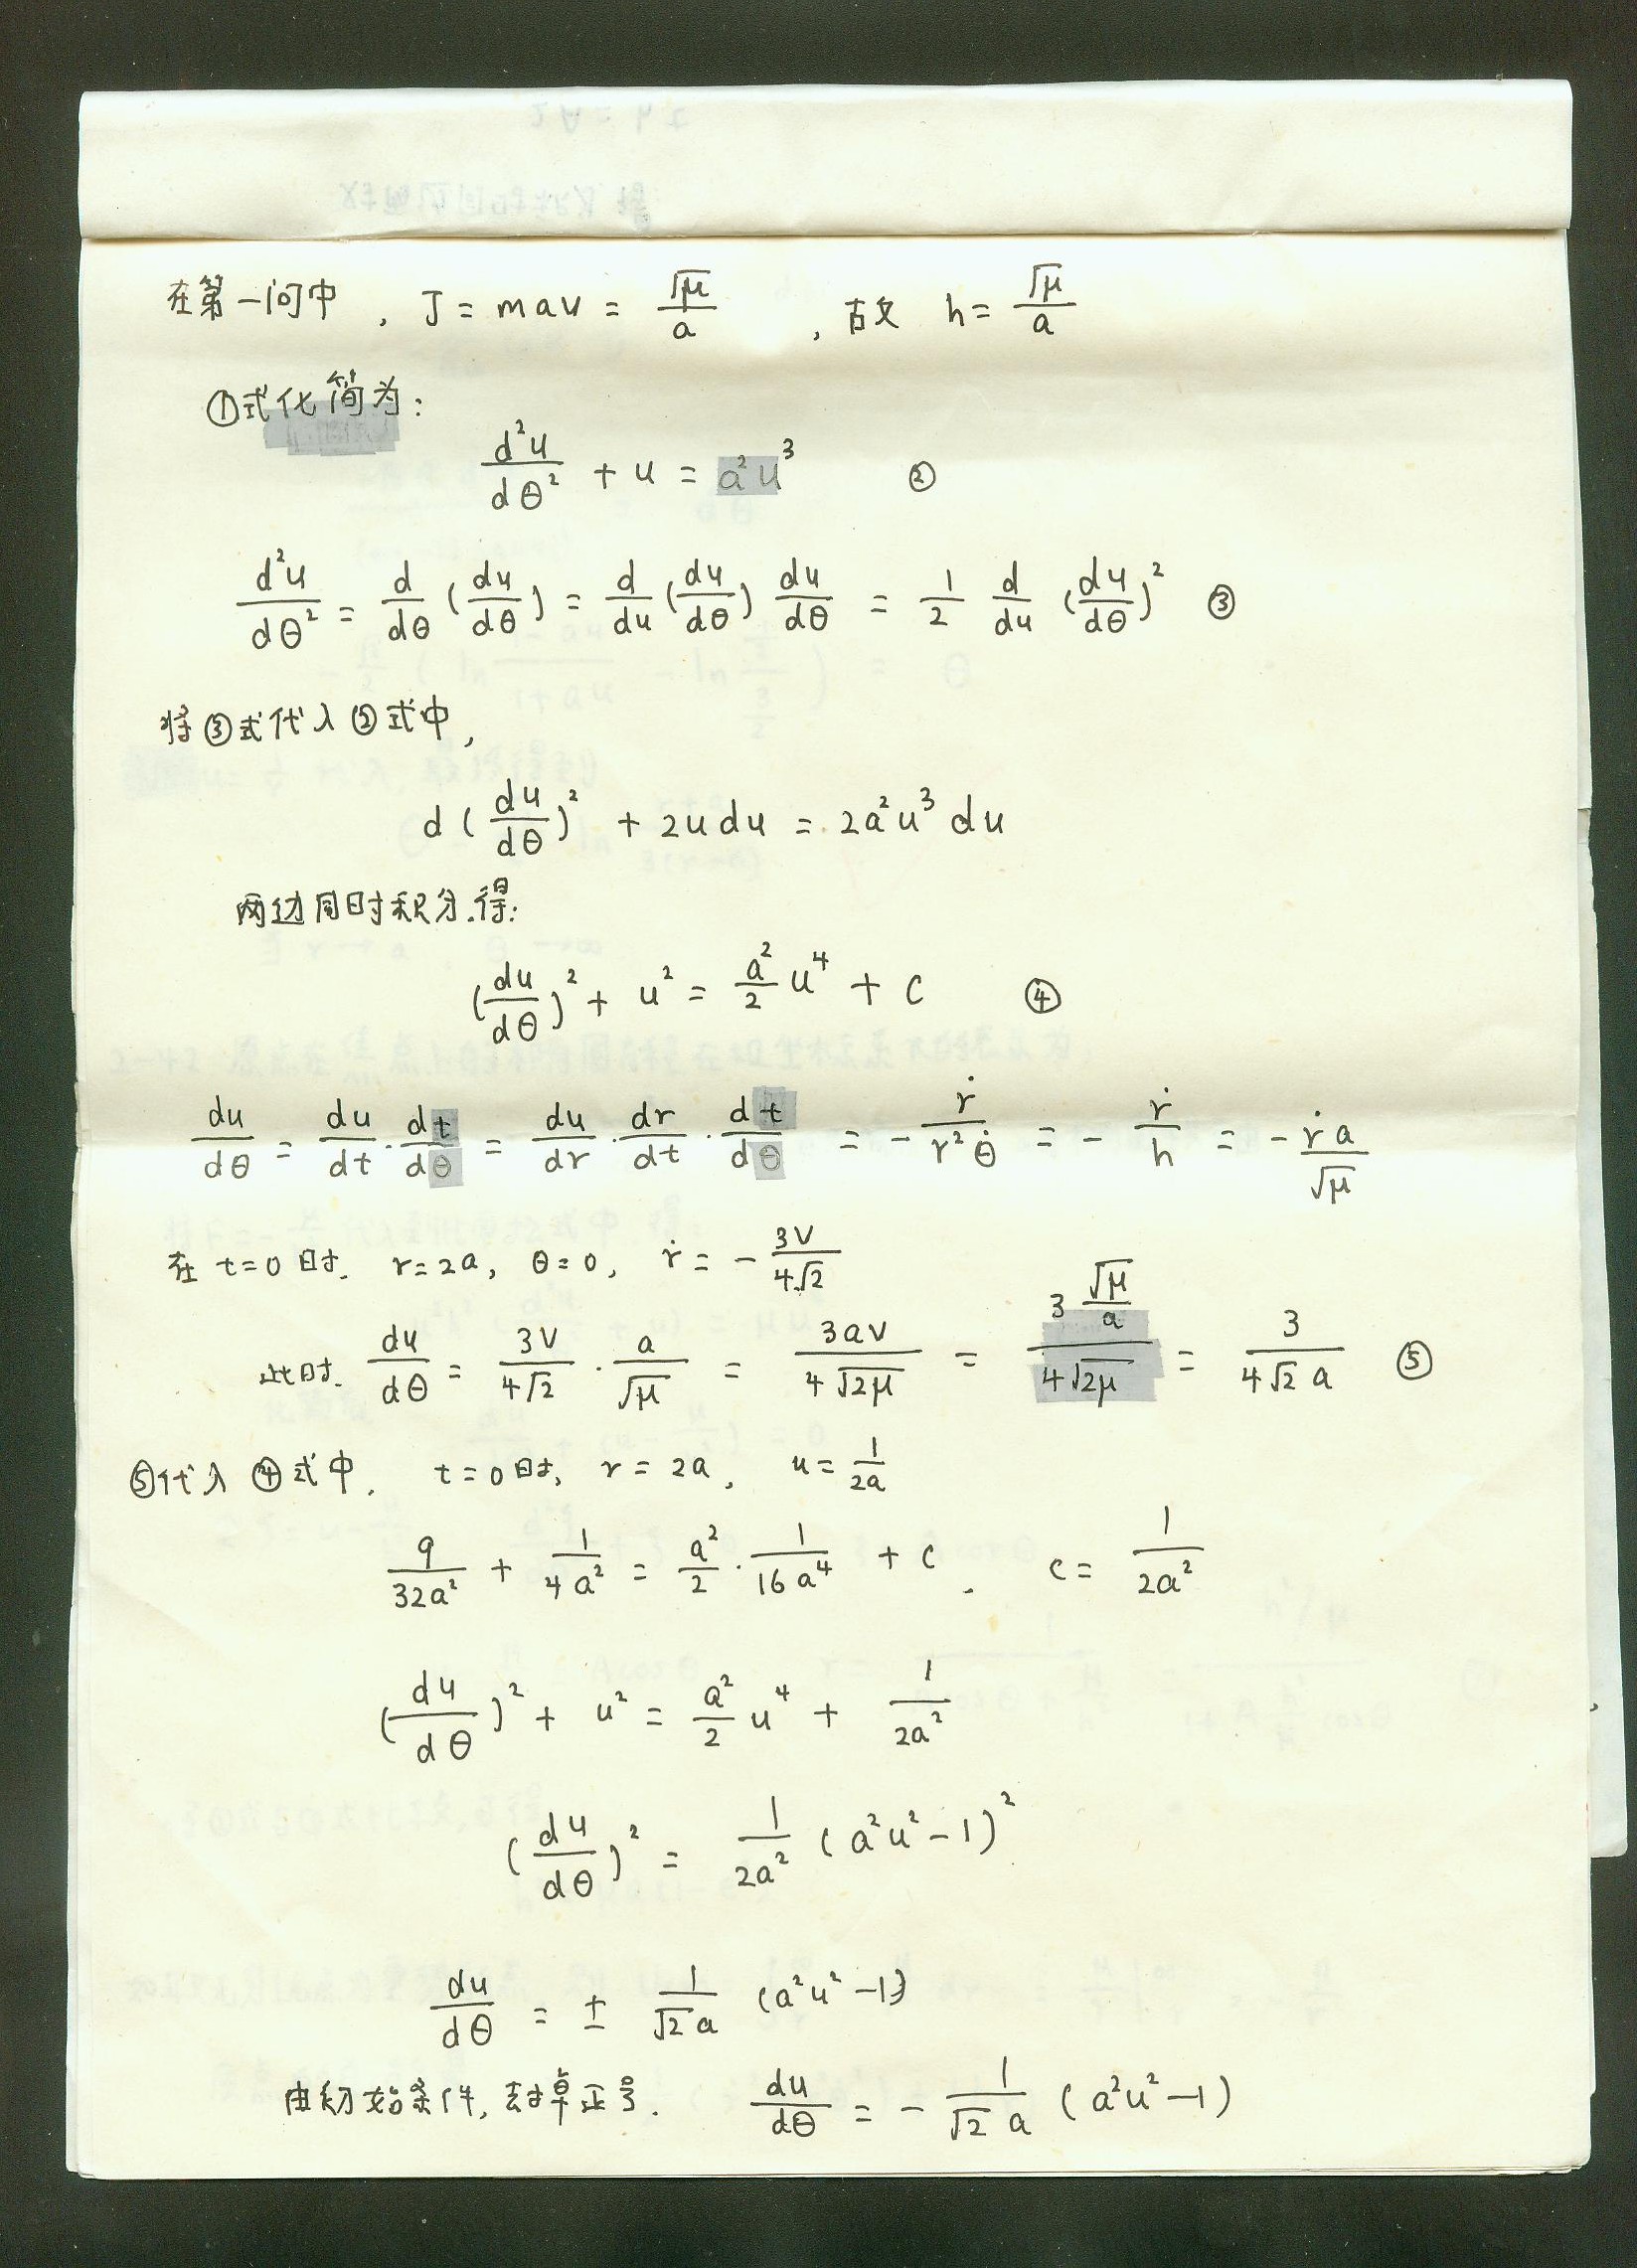 在第一问中, J = mav = √μ/a , 故 h = √μ/a
①式化简为:
d²u/dθ² + u = a²u³ ②
d²u/dθ² = d/dθ (du/dθ) = d/du (du/dθ) du/dθ = 1/2 d/du (du/dθ)² ③
将③式代入②式中,
d(du/dθ)² + 2udu = 2a²u³du
两边同时积分.得:
(du/dθ)² + u² = a²/2 u⁴ + C ④
du/dθ = du/dt · dt/dθ = du/dr · dr/dt · dt/dθ = - ṙ/r²θ̇ = - ṙ/h = - ṙa/√μ
在 t=0时. r=2a, θ=0, ṙ = - 3V/4√2
此时. du/dθ = 3V/4√2 · a/√μ = 3aV/4√2μ = 3 √μ/a / 4√2μ = 3/4√2a ⑤
⑤代入④式中. t=0时, r=2a, u=1/2a
9/32a² + 1/4a² = a²/2 · 1/16a⁴ + C . C = 1/2a²
(du/dθ)² + u² = a²/2 u⁴ + 1/2a²
(du/dθ)² = 1/2a² (a²u²-1)²
du/dθ = ± 1/√2a (a²u²-1)
由初始条件, 去掉正号. du/dθ = - 1/√2a (a²u²-1)